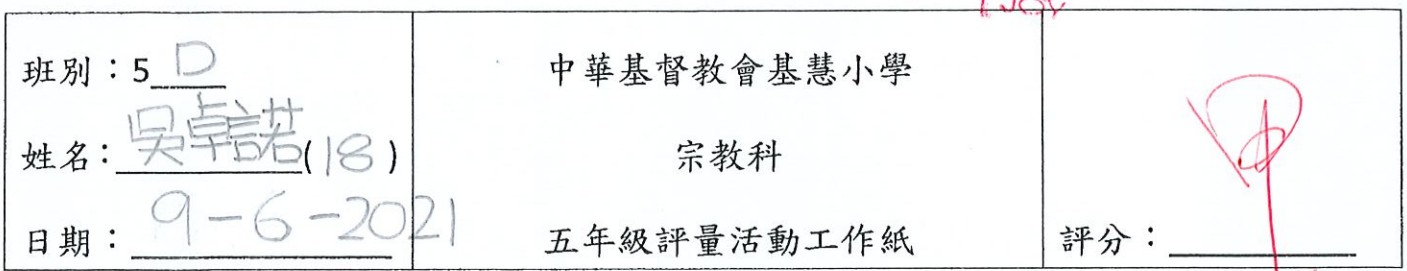 班別：5 D
姓名：吳卓諾(18)
日期：9-6-2021
中華基督教會基慧小學
宗教科
五年級評量活動工作紙
評分：甲